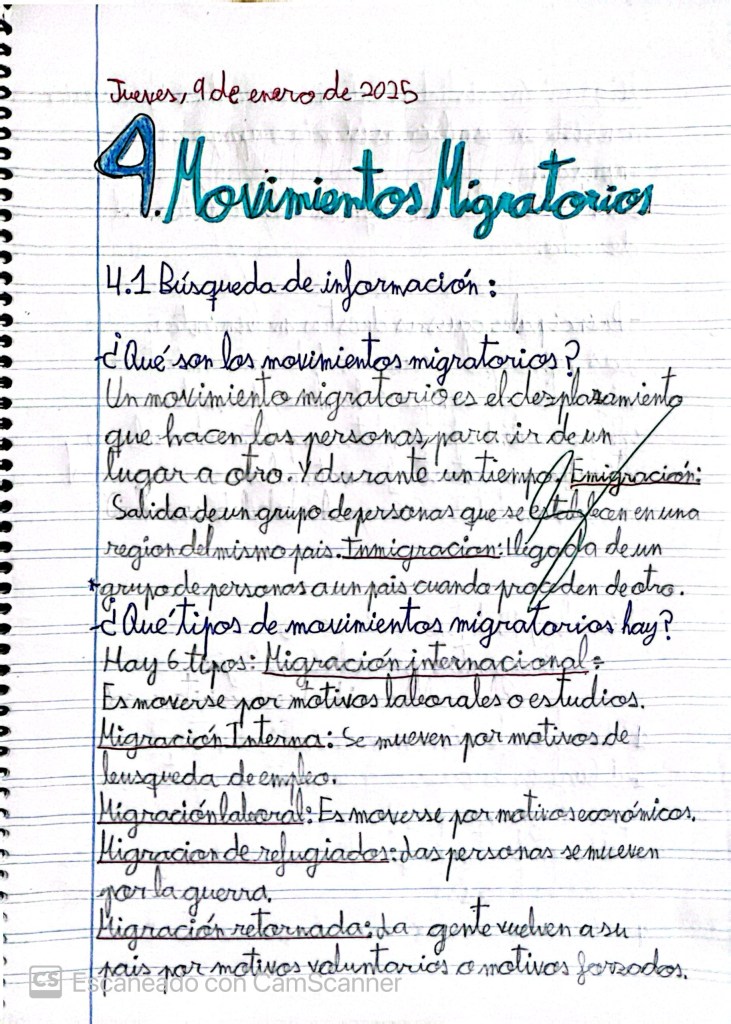 Jueves, 9 de enero de 2025
4. Movimientos Migratorios
4.1 Búsqueda de información:
-¿Qué son los movimientos migratorios?
Un movimiento migratorio es el desplasamiento
que hacen las personas para ir de un
lugar a otro. Y durante un tiempo. Emigración:
Salida de un grupo de personas que se establecen en una
region del mismo pais. Inmigracion: llegada de un
grupo de personas a un pais cuando proceden de otro.
-¿Qué tipos de movimientos migratorios hay?
Hay 6 tipos: Migración internacional:
Es moverse por motivos laborales o estudios.
Migración Interna: Se mueven por motivos de
busqueda de empleo.
Migración laboral: Es moverse por motivos económicos.
Migracion de refugiados: Las personas se mueven
por la guerra.
Migración retornada: La gente vuelven a su
pais por motivos voluntarios o motivos forzados.
CS Escaneado con CamScanner